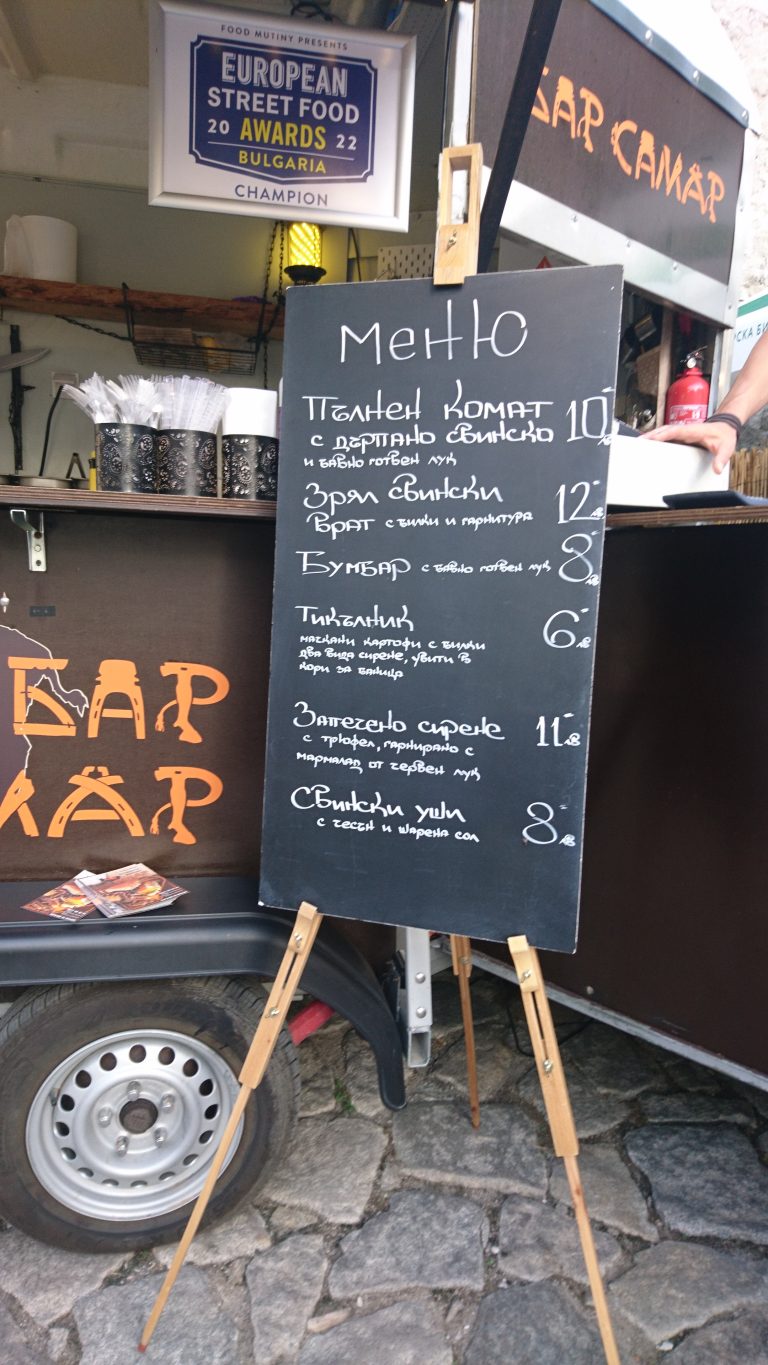 FOOD MUTINY PRESENTS
EUROPEAN
STREET FOOD
20 AWARDS 22
BULGARIA
CHAMPION
БАР САМАР
Меню
Пълнен комат 10 лв
с дърпано свинско
и бавно готвен лук
Зрял свински
врат с билки и гарнитура 12 лв
Бумбар с бавно готвен лук 8 лв
Тикълник 6 лв
мачкани картофи с билки
два вида сирене, увити в
кори за баница
Запечено сирене 11 лв
с трюфел, гарнирано с
мармалад от червен лук
Свински уши 8 лв
с чесън и шарена сол
БАР
МАР